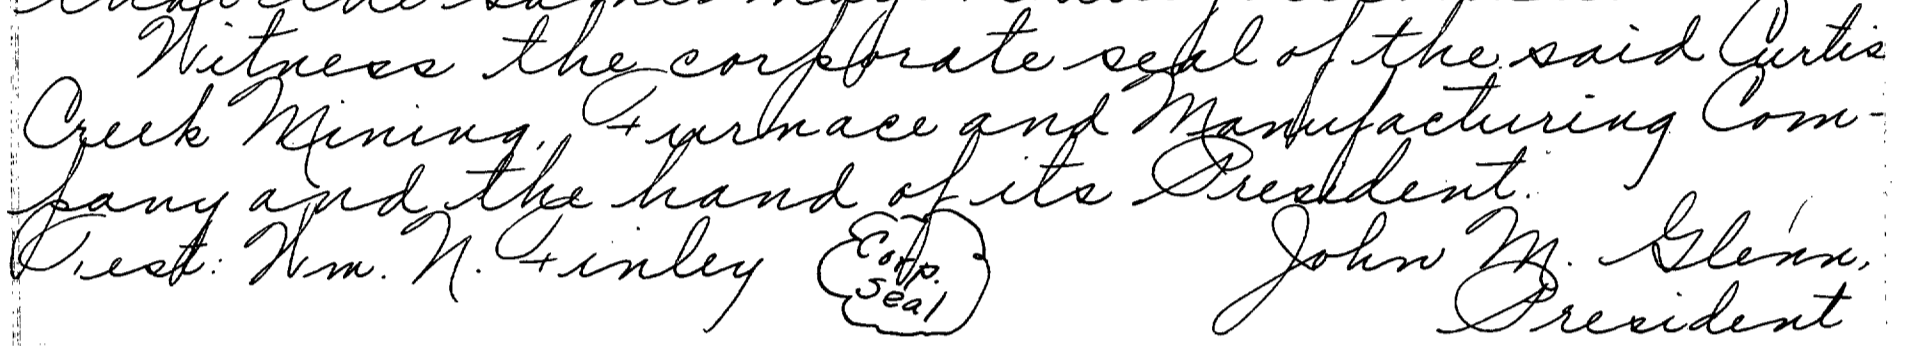 Witness the corporate seal of the said Curtis
Creek Mining, Furnace and Manufacturing Com-
pany and the hand of its President.
Test: Wm. N. Finley Corp. Seal John M. Glenn,
President